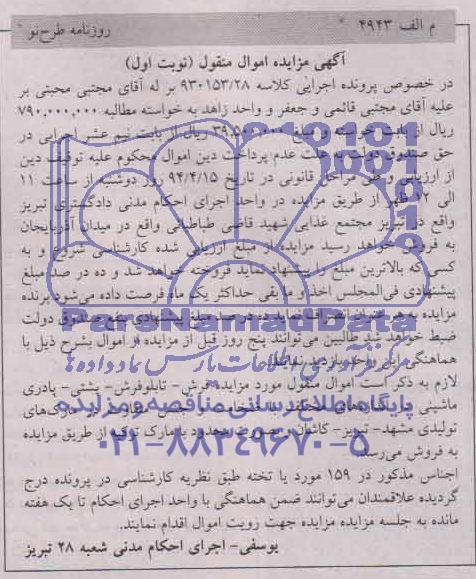 م الف ۴۹۴۳
روزنامه طرح نو
آگهی مزایده اموال منقول (نوبت اول)
در خصوص پرونده اجرایی کلاسه ۹۳۰۱۵۳/۲۸ بر له آقای مجتبی محبتی بر
علیه آقای مجتبی قائمی و جعفر و واحد زاهد به خواسته مطالبه ۷۹۰,۰۰۰,۰۰۰
ریال از بابت خواسته و مبلغ ۳۹,۵۰۰,۰۰۰ ریال از بابت نیم عشر اجرایی در
حق صندوق دولت به علت عدم پرداخت دین اموال محکوم علیه توقیف دین
از ارزیابی و طی مراحل قانونی در تاریخ ۹۴/۴/۱۵ روز دوشنبه از ساعت ۱۱
الی ۱۲ ظهر از طریق مزایده در واحد اجرای احکام مدنی دادگستری تبریز
واقع در تبریز مجتمع غذایی شهید قاضی طباطبائی واقع در میدان آذربایجان
به فروش خواهد رسید مزایده از مبلغ ارزیابی شده کارشناسی شروع و به
کسی که بالاترین مبلغ را پیشنهاد نماید فروخته خواهد شد و ده در صد مبلغ
پیشنهادی فی‌المجلس اخذ و ما بقی حداکثر یک ماه فرصت داده می‌شود برنده
مزایده به هر عنوان انصراف نماید ده در صد مبلغ پیشنهادی بنفع صندوق دولت
ضبط خواهد شد طالبین می‌توانند پنج روز قبل از مزایده از اموال بشرح ذیل با
هماهنگی این واحد بازدید نمایند.
لازم به ذکر است اموال منقول مورد مزایده فرش- تابلوفرش- پشتی- پادری
ماشینی در اندازه‌های مختلف با جنس مختلف در مارک‌های
تولیدی مشهد- تبریز- کاشان و بصورت محدود با مارک ترکیه از طریق مزایده
به فروش می‌رسد.
اجناس مذکور در ۱۵۹ مورد یا تخته طبق نظریه کارشناسی در پرونده درج
گردیده علاقمندان می‌توانند ضمن هماهنگی با واحد اجرای احکام تا یک هفته
مانده به جلسه مزایده مزایده جهت رویت اموال اقدام نمایند.
یوسفی- اجرای احکام مدنی شعبه ۲۸ تبریز
ParsNamadData
مرکز فرآوری اطلاعات پارس نماد داده‌ها
پایگاه اطلاع رسانی مناقصه و مزایده
۰۲۱-۸۸۳۴۹۶۷۰-۵